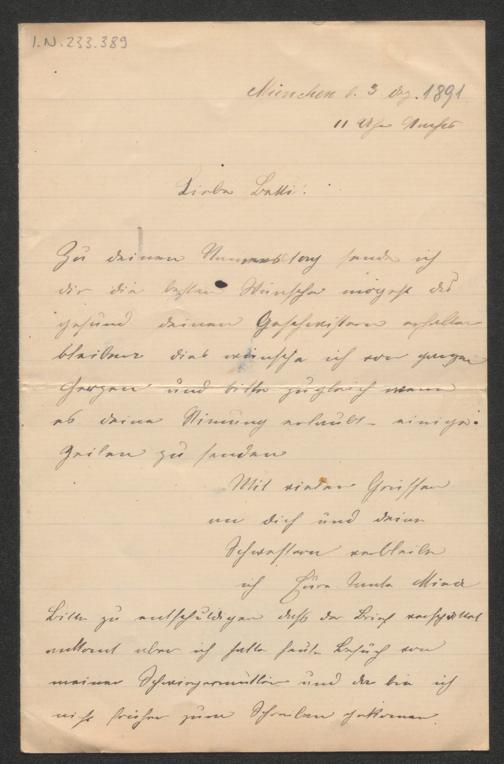 I.N. 233.389
Muenchen d. 3 Dez. 1891
11 Uhr Nachts
Liebe Betti!
Zu deinen Namenstag sende ich
dir die besten Wünsche mögest du
gesund deinen Geschwistern erhalten
bleiben dies wünsche ich von ganzen
Herzen und bitte zugleich wenn
es deine Stimung erlaubt einige
Zeilen zu senden
Mit vielen Grüssen
an dich und deine
Schwestern verbleibe
ich Eure Tante Mina
Bitte zu entschuldigen daß der Brief verspätet
ankomt aber ich hatte heute Besuch von
meiner Schwiegermutter und da bin ich
nicht früher zum Schreiben gekomen.